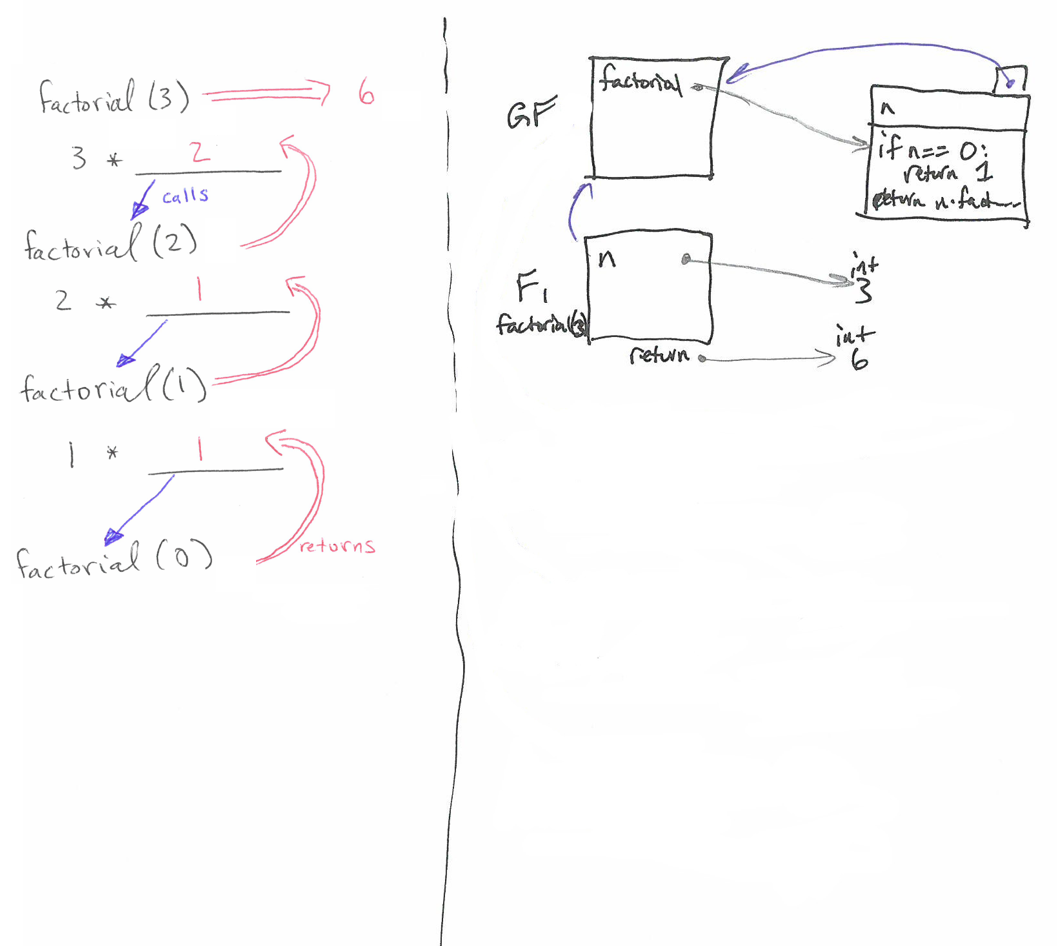 factorial (3) 6
3 * 2
calls
factorial (2)
2 * 1
factorial (1)
1 * 1
returns
factorial (0)
GF
factorial
n
if n == 0:
return 1
return n·fact
F1
factorial(3)
n
int
3
return
int
6